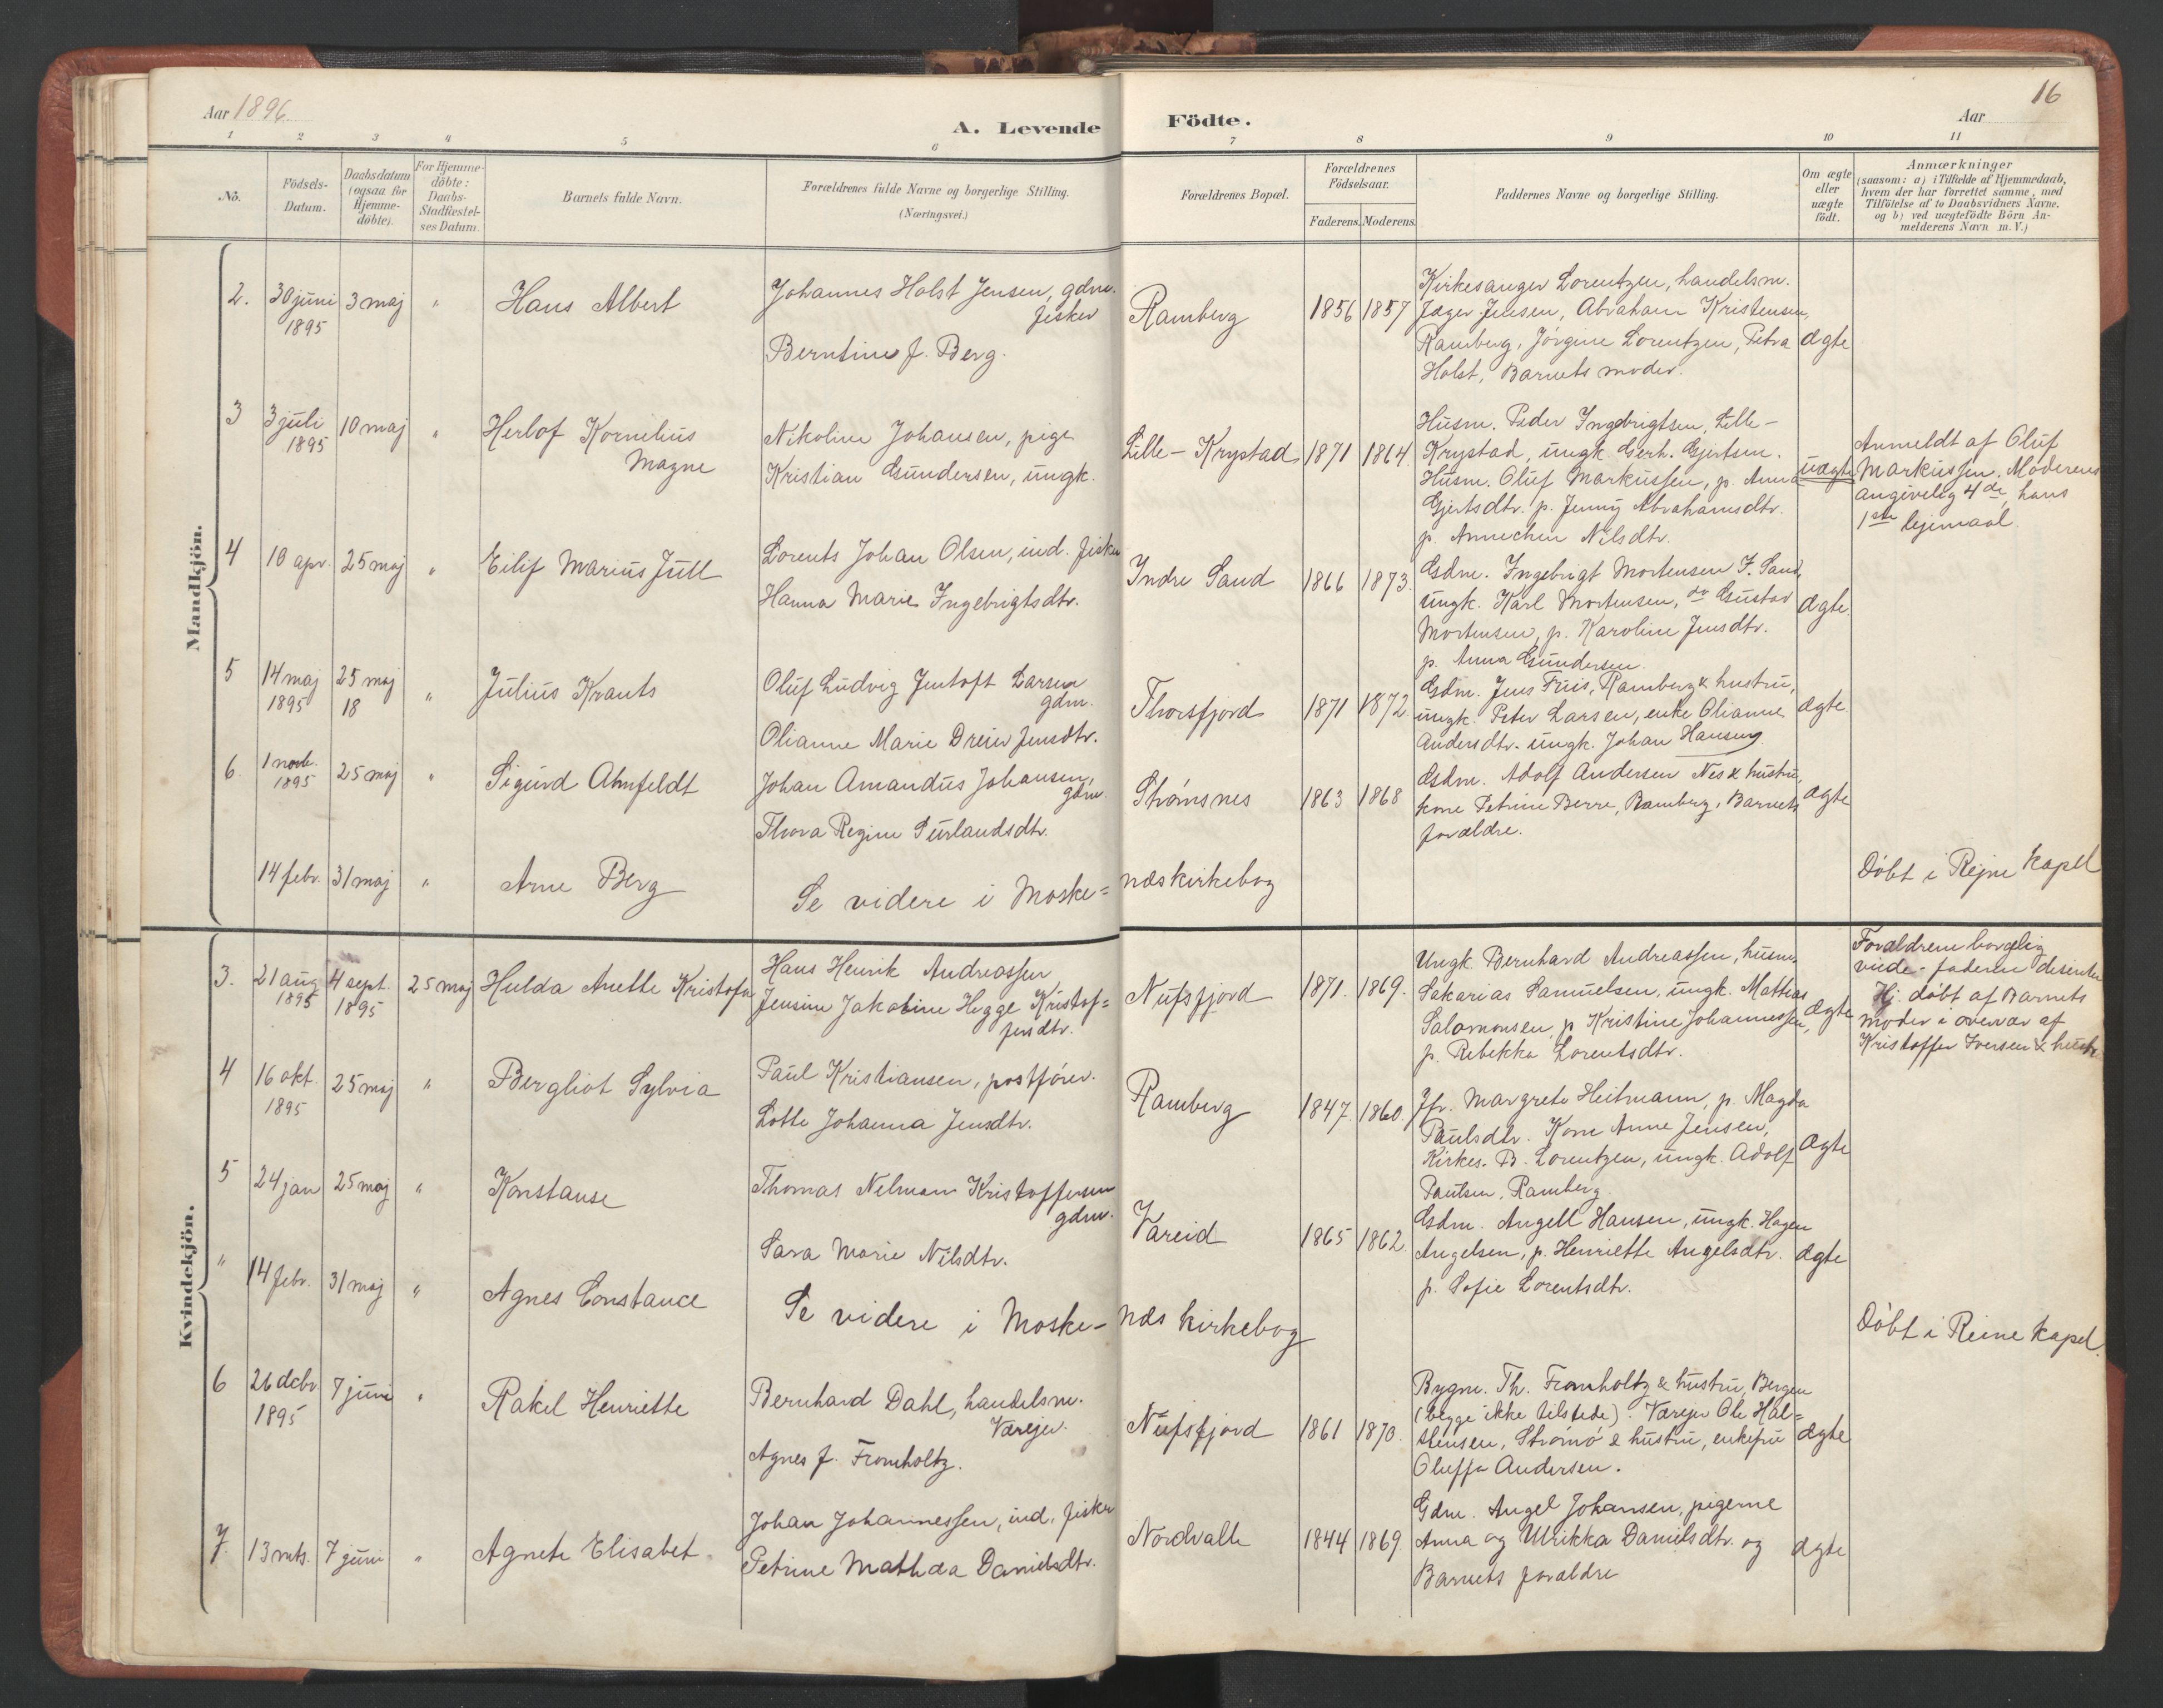 Aar 1896.
A. Levende Födte.
16
Aar
1 2 3 4 5 6 7 8 9 10 11
No.
Födsels-Datum.
Daabsdatum (ogsaa for Hjemme-döbte).
For Hjemme-döbte: Daabs-Stadfæstel-ses Datum.
Barnets fulde Navn.
Forældrenes fulde Navne og borgerlige Stilling.
(Næringsvei.)
Forældrenes Bopæl.
Forældrenes Födselsaar.
Faderens. Moderens.
Faddernes Navne og borgerlige Stilling.
Om ægte eller uægte födt.
Anmærkninger
(saasom: a) i Tilfælde af Hjemmedaab,
hvem der har forrettet samme, med
Tilföielse af to Daabsvidners Navne.
og b) ved uægtefödte Börn An-
melderens Navn m. V.)
Mandkjön.
2. 30 juni 1895 3 maj " Hans Albert
Johannes Holst Jensen, gdm. fisker
Berntine f. Berg.
Ramberg 1856 1857
Kirkesanger Lorentzen, handelsm.
Jæger Jensen, Abraham Kristensen,
Ramberg, Jørgine Lorentzen, Petra
Holst, Barnets moder.
ægte
3 3 juli 1895 10 maj " Herlof Kornelius Magne
Nikoline Johansen, pige
Kristian Gundersen, ungk.
Lille-Krystad 1871 1864.
Husm. Peder Ingebrigtsen, Lille-
Krystad, ungk. Gerh. Gjertsen.
Husm. Oluf Markussen, p. Anna
Gjertsdtr. p. Jenny Abrahamsdtr.
p. Annechen Nilsdtr.
uægte
Anmeldt af Oluf
Markussen. Moderens
angivelig 4de, hans
1ste lejemaal.
4 10 apr. 25 maj " Eilif Marius Jull
Lorents Johan Olsen, ind. fisker
Hanna Marie Ingebrigtsdtr.
Indre Sand 1866 1873.
Gdm. Ingebrigt Mortensen I. Sand,
ungk. Karl Mortensen, do Gustav
Mortensen, p. Karoline Jensdtr.
p. Anna Gundersen.
ægte.
5 14 maj 1895 25 maj 18 " Julius Krants
Oluf Ludvig Jentoft Larsen gdm.
Olianne Marie Dreier Jensdtr.
Thorsfjord 1871 1872.
Gdm. Jens Friis, Ramberg & hustru,
ungk. Peter Larsen, enke Olianne
Andersdtr. ungk. Johan Hansen
ægte
6. 1 novb. 1895 25 maj " Sigurd Ahnfeldt
Johan Amandus Johansen, gdm.
Thora Regine Purlandsdtr.
Strømsnes 1863 1868
Gdm. Adolf Andersen Nes & hustru,
kone Petrine Berre, Ramberg, Barnets
forældre.
ægte
14 febr. 31 maj " Arne Berg
Se videre i Moske=næs kirkebog
Døbt i Rejne kapel
Kvindekjön.
3. 21 aug 1895 4 sept. 1895 25 maj Hulda Anette Kristofa
Hans Henrik Andreassen
Jensine Jakobine Hegge Kristof=fersdtr.
Nufsfjord 1871. 1869.
Ungk. Bernhard Andreassen, husm.
Sakarias Samuelsen, ungk. Mattias
Salamonsen, p. Kristine Johannessen,
p. Rebekka Lorentsdtr.
ægte
Forældrene borgelig
viede - faderen disenter
Hj. døbt af Barnets
moder i overvær af
Kristoffer Iversen & hustr.
4 16 okt. 1895 25 maj " Bergliot Sylvia
Paul Kristiansen, postfører.
Lotte Johanna Jensdtr.
Ramberg 1847. 1860.
Jfr. Margrete Heitmann, p. Magda
Paulsdtr. Kone Anne Jensen,
Kirkes. B. Lorentzen, ungk. Adolf
Paulsen, Ramberg
ægte
5 24 jan 25 maj " Konstanse
Thomas Nelman Kristoffersen gdm.
Sara Marie Nilsdtr.
Vareid 1865 1862.
Gdm. Angell Hansen, ungk. Hagen
Angelsen, p. Henriette Angelsdtr.
p. Sofie Lorentsdtr.
ægte
" 14 febr. 31 maj " Agnes Constance
Se videre i Moske-næs kirkebog
Døbt i Reine kapel.
6 26 decbr 1895 7 juni " Rakel Henriette
Bernhard Dahl, handelsm. Værejer.
Agnes f. Fromholtz.
Nufsfjord 1861 1870.
Bygm. Th. Fromholtz & hustru, Bergen
(begge ikke tilstede). Værejer Ole Hal=
stensen, Strømø & hustru, enkefru
Oluffa Andersen.
ægte
7. 13 mts. 7 juni " Agnete Elisabet
Johan Johannessen, ind. fisker
Petrine Mathda Danielsdtr.
Nordvalle 1844 1869.
Gdm. Angel Johansen, pigerne
Anna og Ulrikka Danielsdtr. og
Barnets forældre
ægte